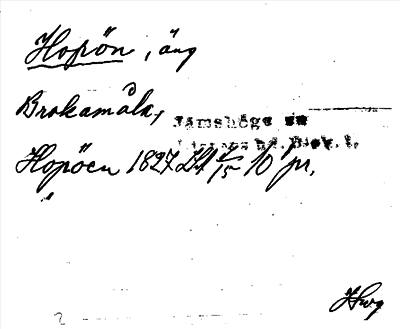 Hopön, äng
Brokamåla, Jämshögs sn
Listers hd. Blek. l.
Hopöen 1827 Lf 4/15 10 pr.